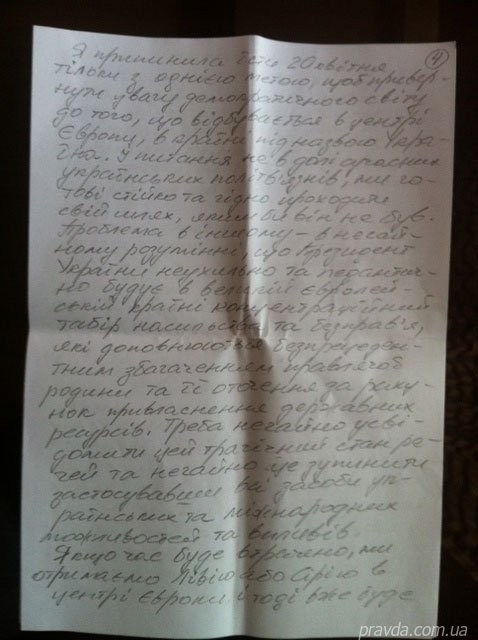 ④
Я припинила їсти 20 квітня,
тільки з однією метою, щоб привер-
нути увагу демократичного світу
до того, що відбувається в центрі
Європи, в країні під назвою Укра-
їна. І питання не в долі сучасних
українських політв'язнів, ми го-
тові стійко та гідно проходити
свій шлях, яким би він не був.
Проблема в іншому - в негай-
ному розумінні, що Президент
України неухильно та педантич-
но будує в великій європей-
ській країні концентраційний
табір насильства та безправ'я,
які доповнюються безпрецеден-
тним збагаченням правлячої
родини та її оточення за раху-
нок привласнення державних
ресурсів. Треба негайно усві-
домити цей трагічний стан ре-
чей та негайно це зупинити
застосувавши всі засоби ук-
раїнських та міжнародних
можливостей та впливів.
Якщо час буде втрачено, ми
отримаємо Лівію або Сірію в
центрі Європи і тоді вже буде
pravda.com.ua